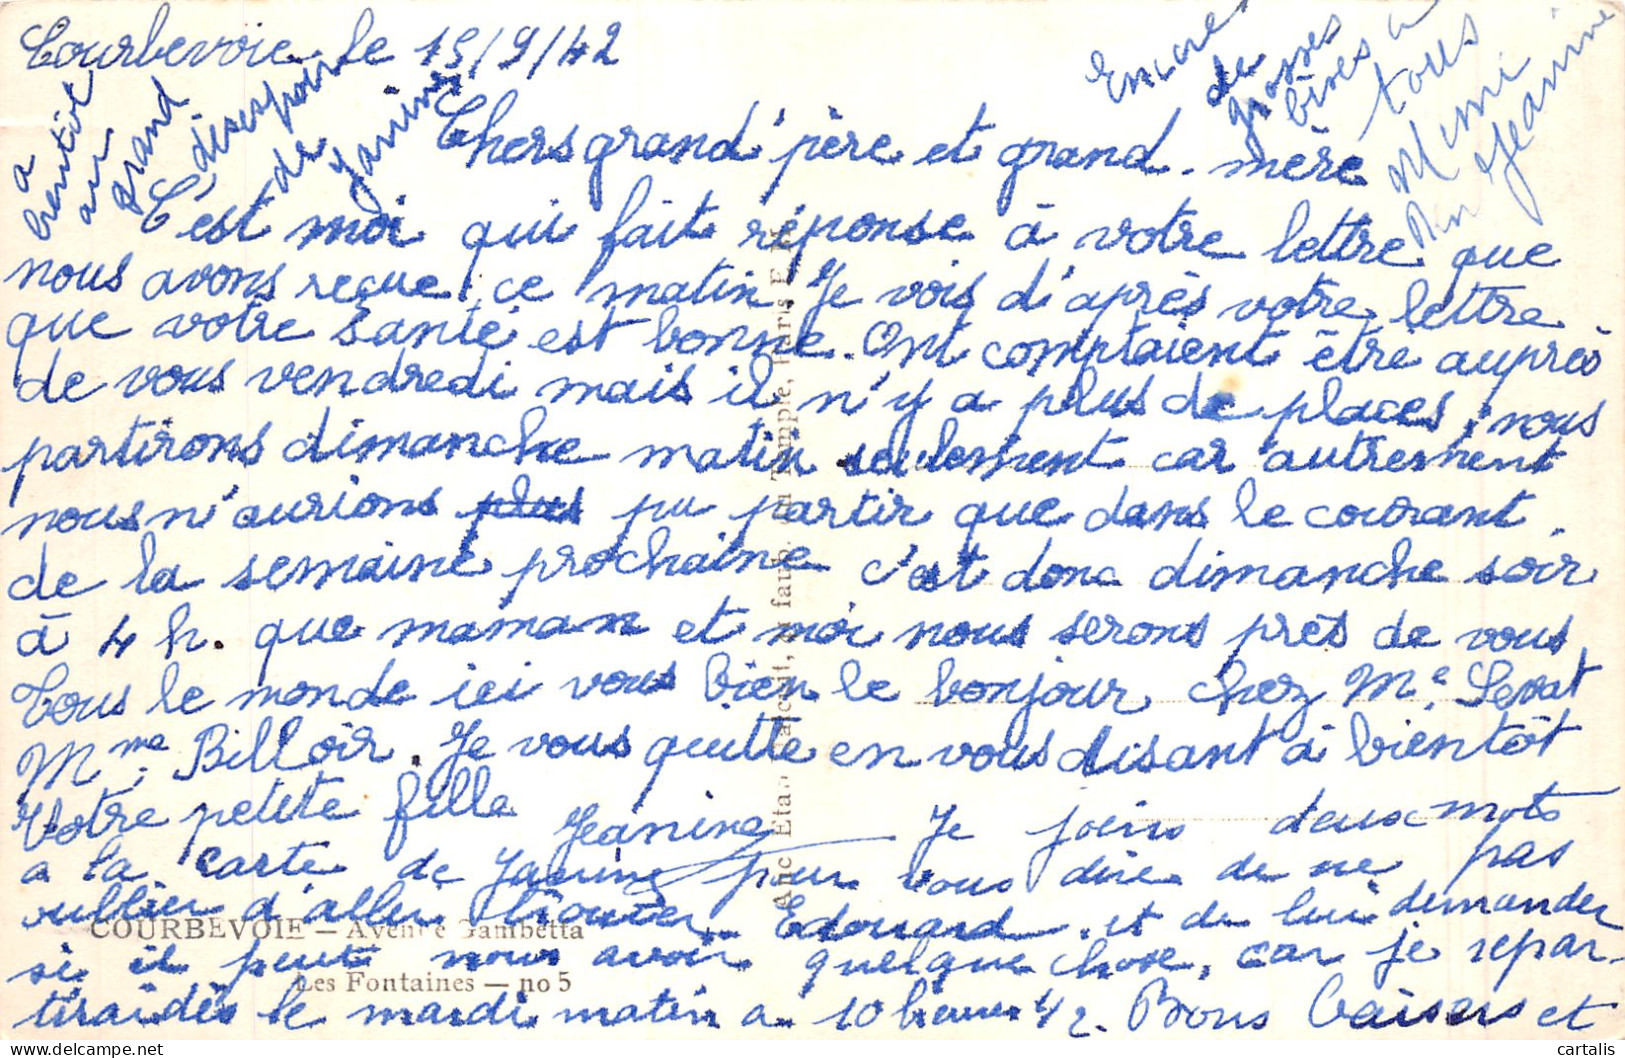 Courbevoie le 15/9/42
Chers grand'père et grand-mère
C'est moi qui fait réponse à votre lettre que
nous avons reçue ce matin. Je vois d'après votre lettre
que votre santé est bonne. Ont comptaient être auprès
de vous vendredi mais il n'y a plus de places, nous
partirons dimanche matin seulement car autrement
nous n'aurions plus pu partir que dans le courant
de la semaine prochaine c'est donc dimanche soir
à 4 h. que maman et moi nous serons près de vous
Tous le monde ici vous bien le bonjour chez Me
Mme Billoir. Je vous quitte en vous disant à bientôt
Votre petite fille
Jeanine
Je joins deux mots
a la carte de Janine pour vous dire de ne pas
oublier d'aller trouver Edouard et de lui demander
si il peut nous avoir quelque chose, car je repar-
tirai dès le mardi matin a 10 heures 1/2. Bons baisers et
a
bientôt
au
grand
désespoir
de
Janine
Encore
de
grosses
bises a
tous
Mimi
Jeanine
COURBEVOIE — Avenue Gambetta
Les Fontaines — no 5
cartalis